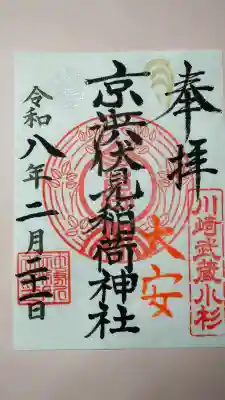 奉拝
川崎武蔵小杉
大安
京浜伏見稲荷神社
令和八年二月二十一日